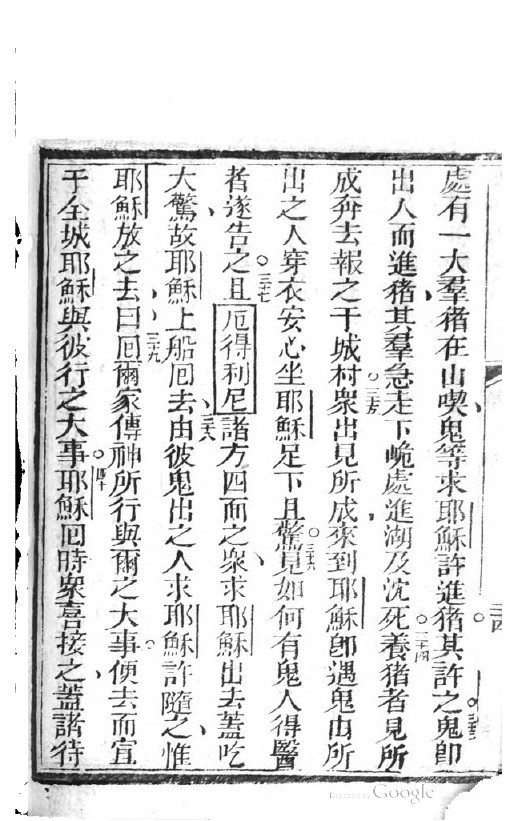 處有一大羣猪在山喫鬼等求耶穌許進猪其許之三十三鬼卽
出人而進猪其羣急走下峗處進湖及沈死三十四養猪者見所
成奔去報之于城村三十五衆出見所成來到耶穌卽遇鬼由所
出之人穿衣安心坐耶穌足下且驚三十六見如何有鬼人得醫
者遂告之三十七且厄得利尼諸方四面之衆求耶穌出去蓋吃
大驚故耶穌上船囘去三十八由彼鬼出之人求耶穌許隨之惟
耶穌放之去曰三十九囘爾家傳神所行與爾之大事便去而宣
于全城耶穌與彼行之大事四十耶穌囘時衆喜接之蓋諸待
Digitized by Google